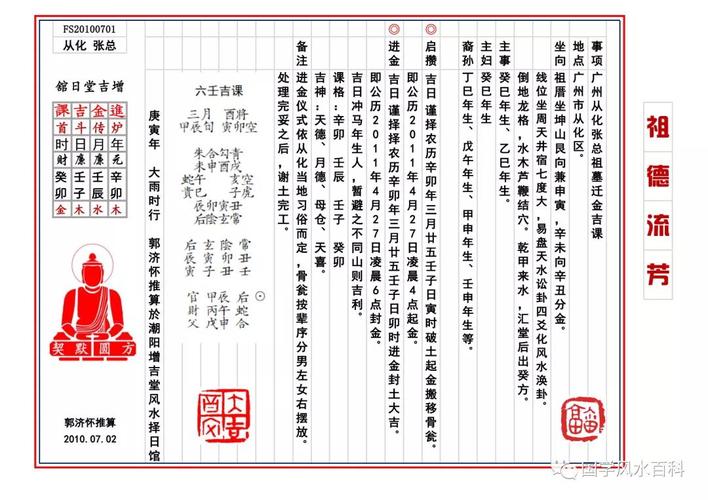 祖德流芳
事项 广州从化张总祖墓迁金吉课
地点 广州市从化区。
坐向 祖厝坐坤山艮向兼申寅，辛未向辛丑分金。
线位坐周天井宿七度大，易盘天水讼卦四爻化风水涣卦。
倒地龙格，水木芦鞭结穴。乾甲来水，汇堂后出癸方。
主事 癸巳年生、乙巳年生。
主妇 癸巳年生
裔孙 丁巳年生、戊午年生、甲申年生、壬申年生等。
◎ 启攒 吉日 谨择农历辛卯年三月廿五壬子日寅时破土起金搬移骨瓮。
即公历2011年4月27日凌晨4点起金。
◎ 进金 吉日 谨择农历辛卯年三月廿五壬子日卯时进金封土大吉。
即公历2011年4月27日凌晨6点封金。
吉日冲马年生人，暂避之不同山则吉利。
课格：辛卯 壬辰 壬子 癸卯
吉神：天德、月德、母仓、天喜。
备注 进金仪式依从化当地习俗而定，骨瓮按辈序分男左女右摆放。
处理完妥之后，谢土完工。
六壬吉课
三月 酉將
甲辰旬 寅卯空
朱合勾青
未申酉戌
蛇午 亥空
貴巳 子虎
辰卯寅丑
后陰玄常
后玄陰常
辰寅卯丑
寅子丑壬
官 甲辰 后
財 丙午 蛇
父 戊申 合
庚寅年 大雨时行 郭济怀推算於潮阳增吉堂风水择日馆
FS20100701
从化 张总
舘日堂吉增
課吉金進
首斗传炉
时日月年
财廉廉元
癸壬壬辛
卯子辰卯
金木水木
契默圆方
郭济怀推算
2010.07.02
国学风水百科